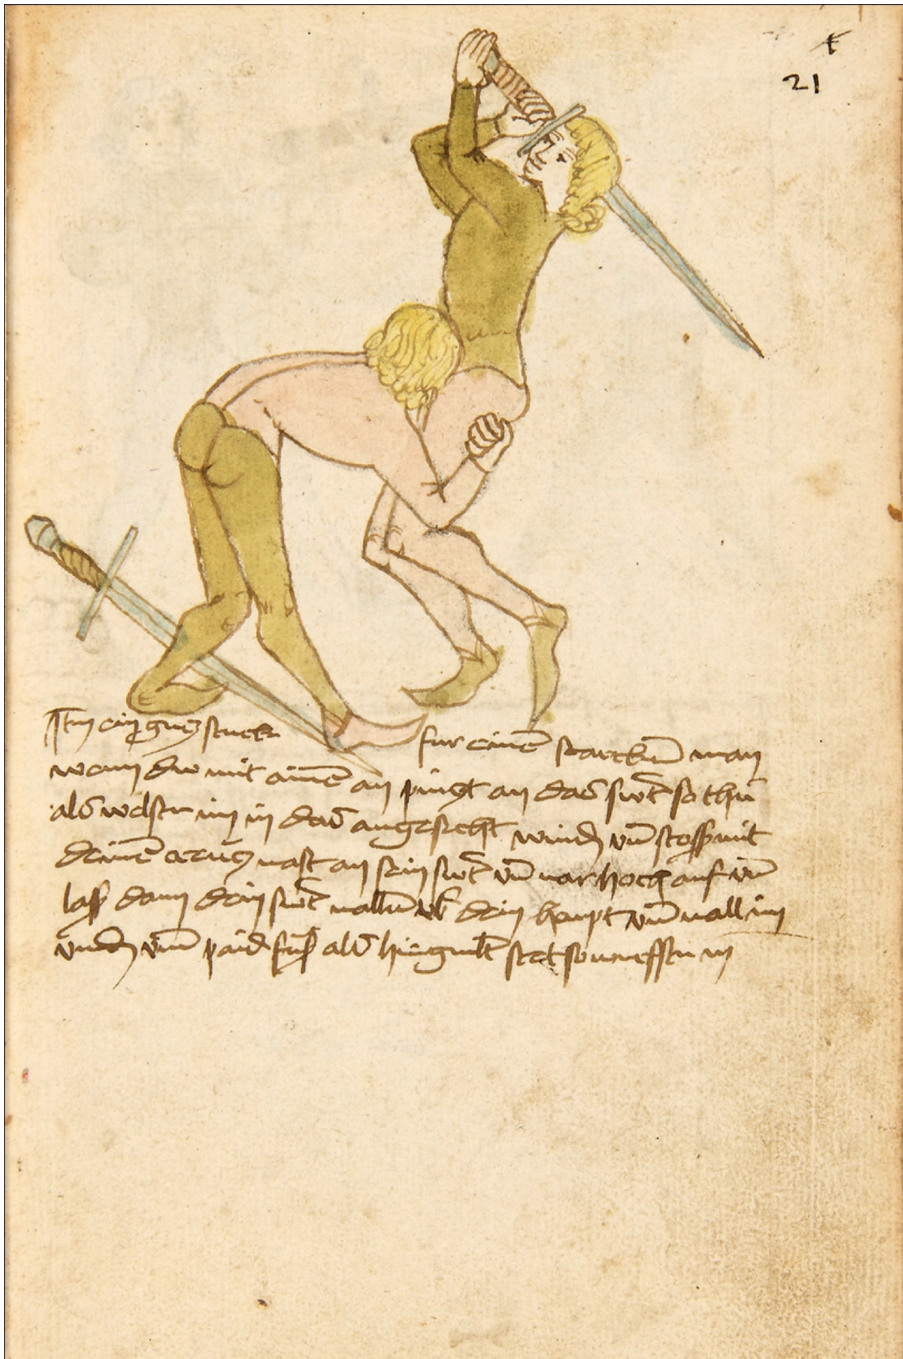 21
Itm ein guetz stuck
fur einē starckn̄ man
wann dw mit ainē an pingt an das swt so thū
als wolstu im in das angesicht windn̄ vn̄ stoss mit
deinē creutz vast an sein swt vn̄ var hoch auf vn̄
lass dann dein swt valln̄ vb dein haupt vn̄ vall im
vndn̄ vm paid fuß als hie gmlt stet so wirffstu in